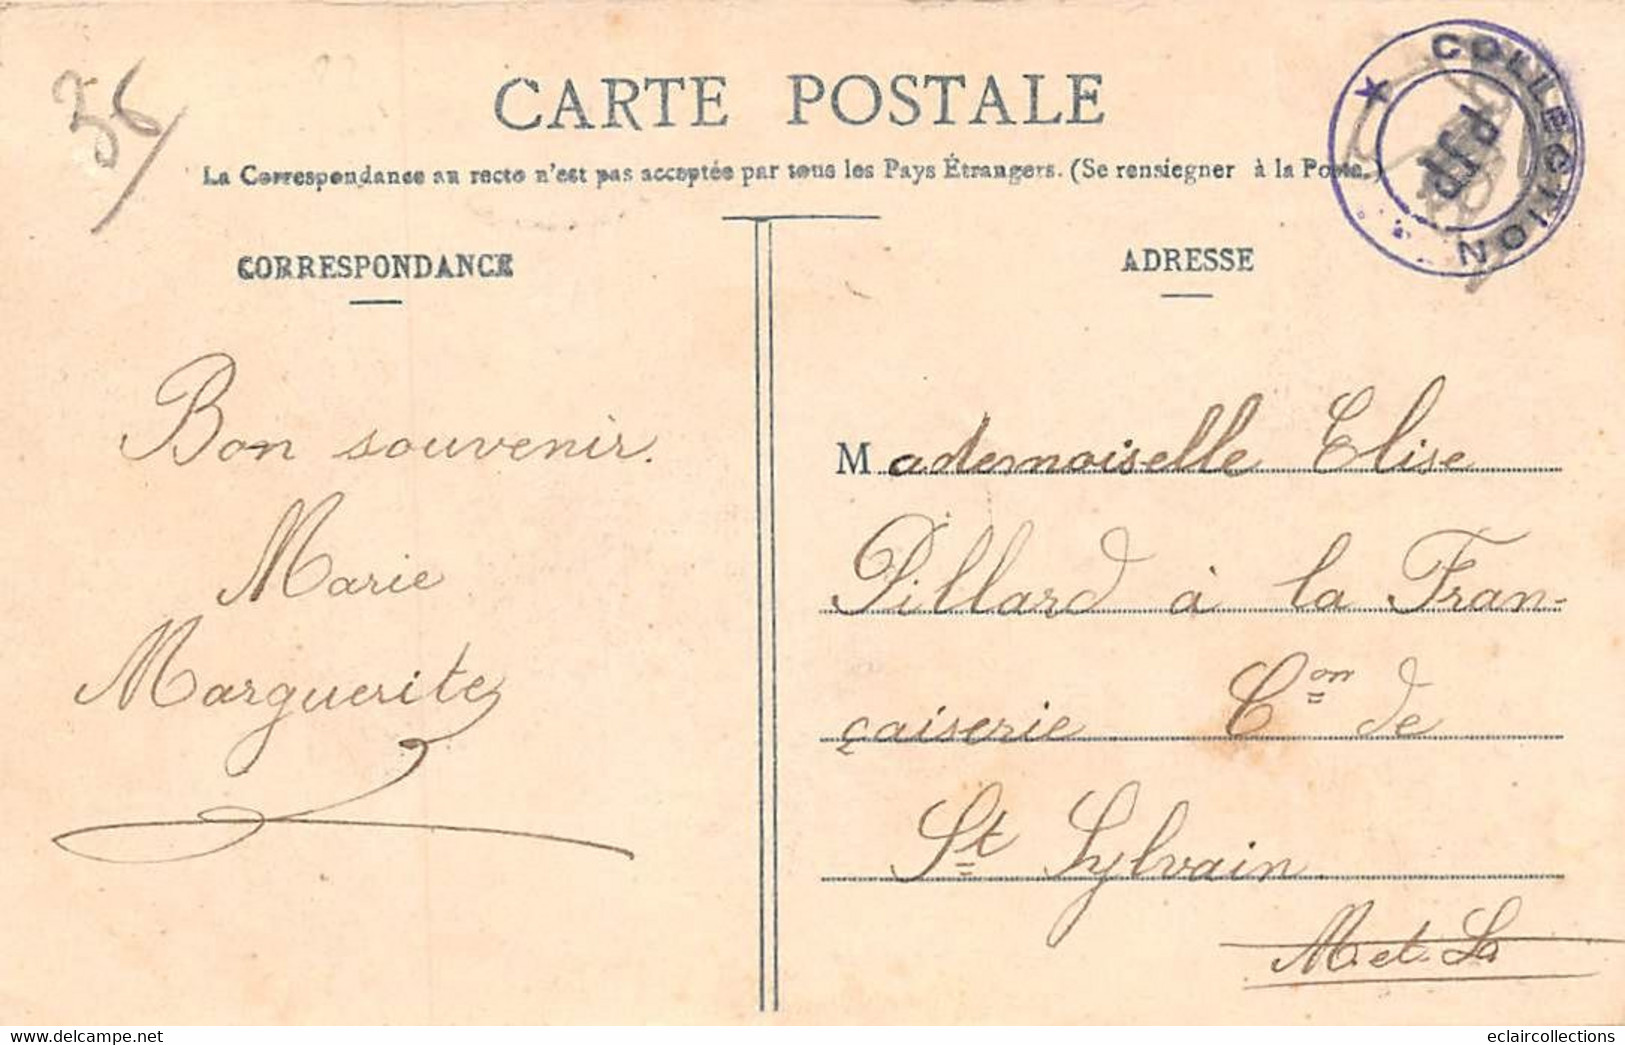 56
CARTE POSTALE
La Correspondance au recto n'est pas acceptée par tous les Pays Étrangers. (Se rensiegner à la Poste.)
COLLECTION
PJP
CORRESPONDANCE
Bon souvenir.
Marie
Marguerite
ADRESSE
Mademoiselle Elise
Pillard à la Fran-
çaiserie Con de
St Sylvain
M. et L.
www.delcampe.net
eclaircollections